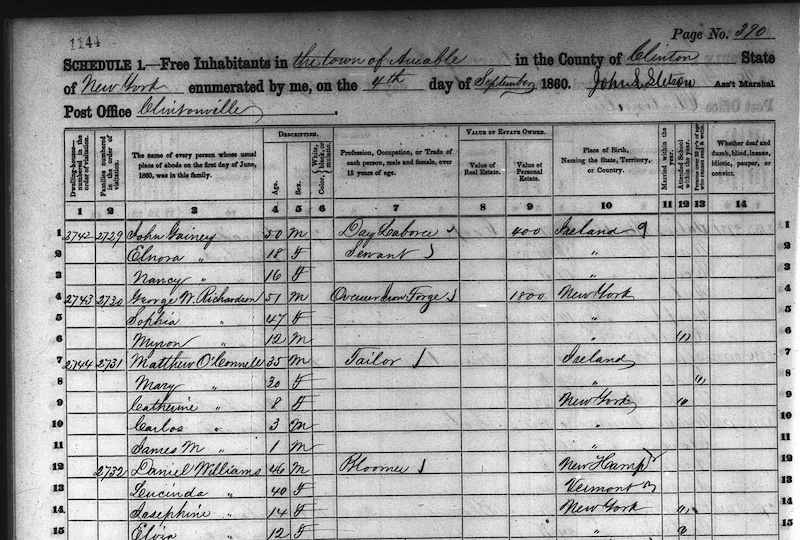 1144
Page No. 390
SCHEDULE 1.—Free Inhabitants in the town of Ausable in the County of Clinton State
of New York enumerated by me, on the 4th day of September 1860. Ass't Marshal
Post Office Clintonville
DESCRIPTION. VALUE OF ESTATE OWNED.
Dwelling-houses—numbered in the order of visitation. Families numbered in the order of visitation. The name of every person whose usual place of abode on the first day of June, 1860, was in this family. Age. Sex. Color, Profession, Occupation, or Trade of each person, male and female, over 15 years of age. Value of Real Estate. Value of Personal Estate. Place of Birth, Naming the State, Territory, or Country. Married within the year. Attended School within the year. Whether deaf and dumb, blind, insane, idiotic, pauper, or convict.
1 2 3 4 5 6 7 8 9 10 11 12 13 14
1 2742 2729 John Gainey 50 M Day Laborer 400 Ireland 1
2 Elnora " 18 F Servant " 2
3 Nancy " 16 F " 3
4 2743 2730 George W. Richardson 51 M Iron Forge 1800 New York 4
5 Sophia " 47 F " 5
6 Myron " 12 M " " 6
7 2744 2731 Matthew O'Connell 35 M Tailor Ireland 7
8 Mary " 30 F " " 8
9 Catherine " 8 F New York " 9
10 Carlos " 3 M " 10
11 James M " 1 M " 11
12 2732 Daniel Williams 46 M Bloomer New Hamp 12
13 Lucinda " 40 F Vermont 13
14 Josephine " 14 F New York " 14
15 Elvia " 12 F " " 15